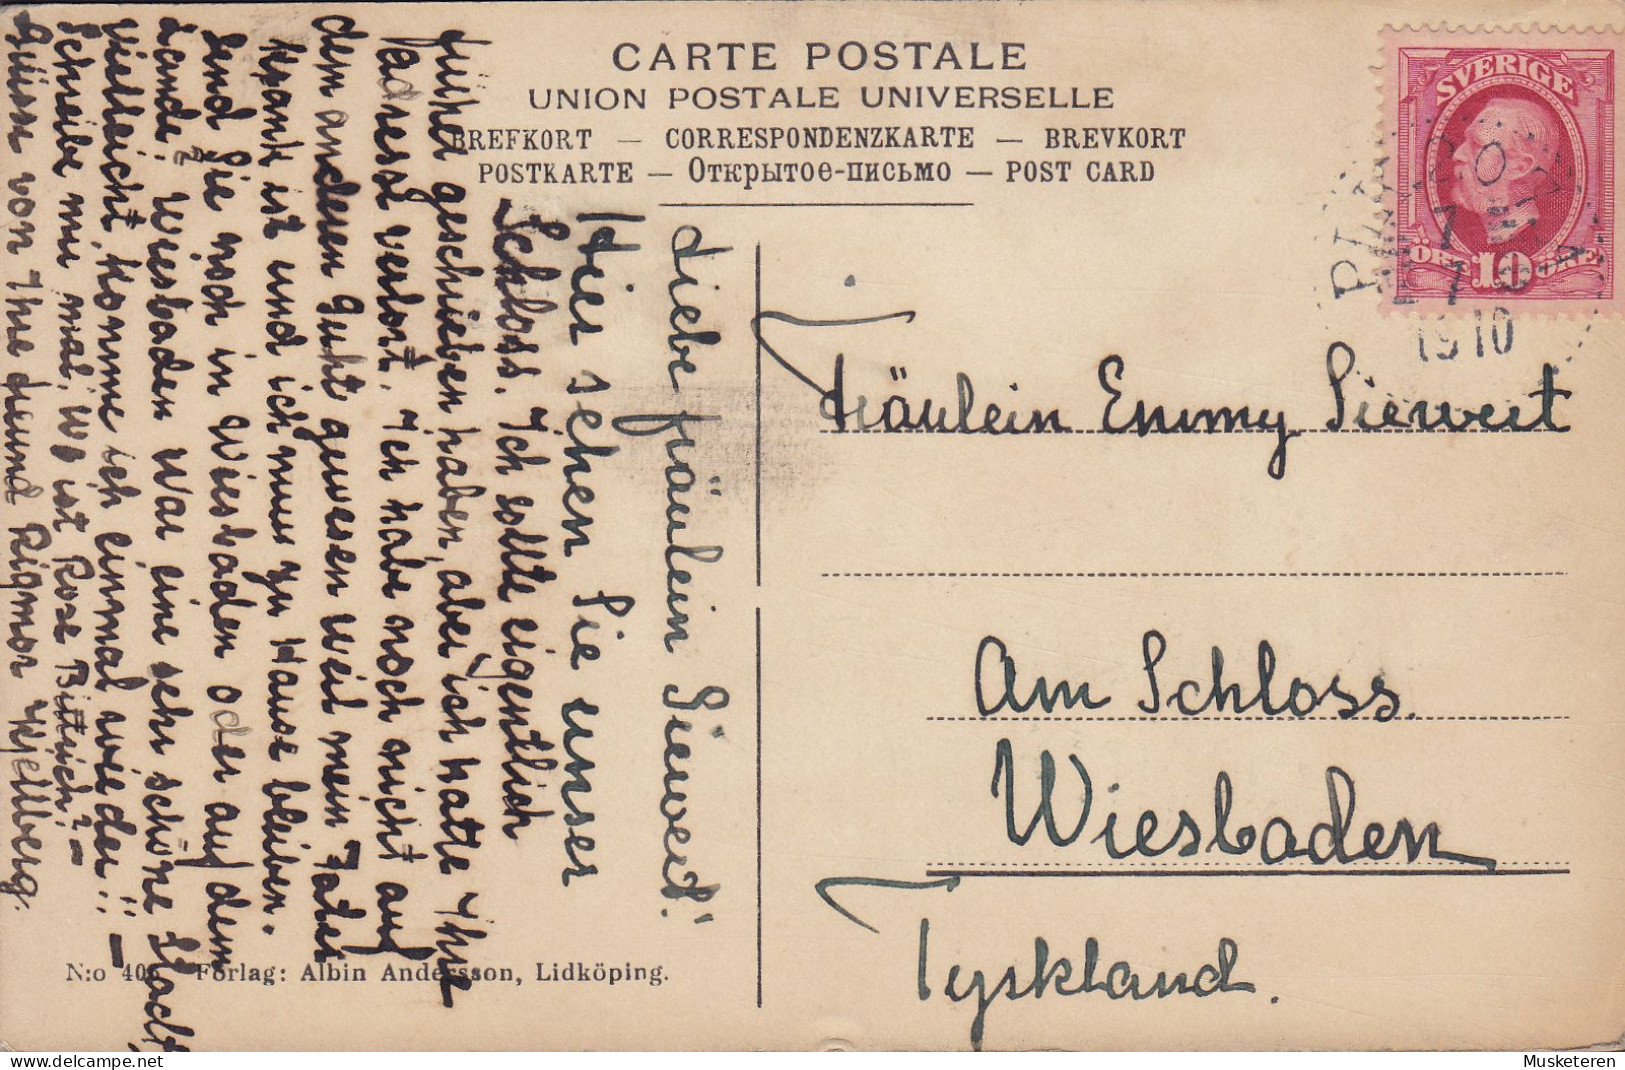 CARTE POSTALE
UNION POSTALE UNIVERSELLE
BREFKORT — CORRESPONDENZKARTE — BREVKORT
POSTKARTE — Открытое-письмо — POST CARD
SVERIGE
ÖRE 10 ÖRE
7 7
1910
Liebe Fräulein Siewert!
Hier sehen Sie unser
Schloss. Ich sollte eigentlich
früher geschrieben haben, aber ich hatte Ihre
Adresse verlort. Ich habe noch nicht auf
dem anderen Guht gewesen weil mein Vater
krank ist und ich muss zu Hause bleiben.
Send Sie noch in Wiesbaden oder auf dem
Lande? Wiesbaden war eine sehr schöne Stadt,
vielleicht komme ich einmal wieder!! —
Schreibe mir mal, wo ist Rose Bittrich? —
Grüsse von Ihre Freund Rigmor Kjellberg.
Fräulein Emmy Siewert
Am Schloss.
Wiesbaden
Tyskland.
N:o 40 Förlag: Albin Andersson, Lidköping.
Musketeren